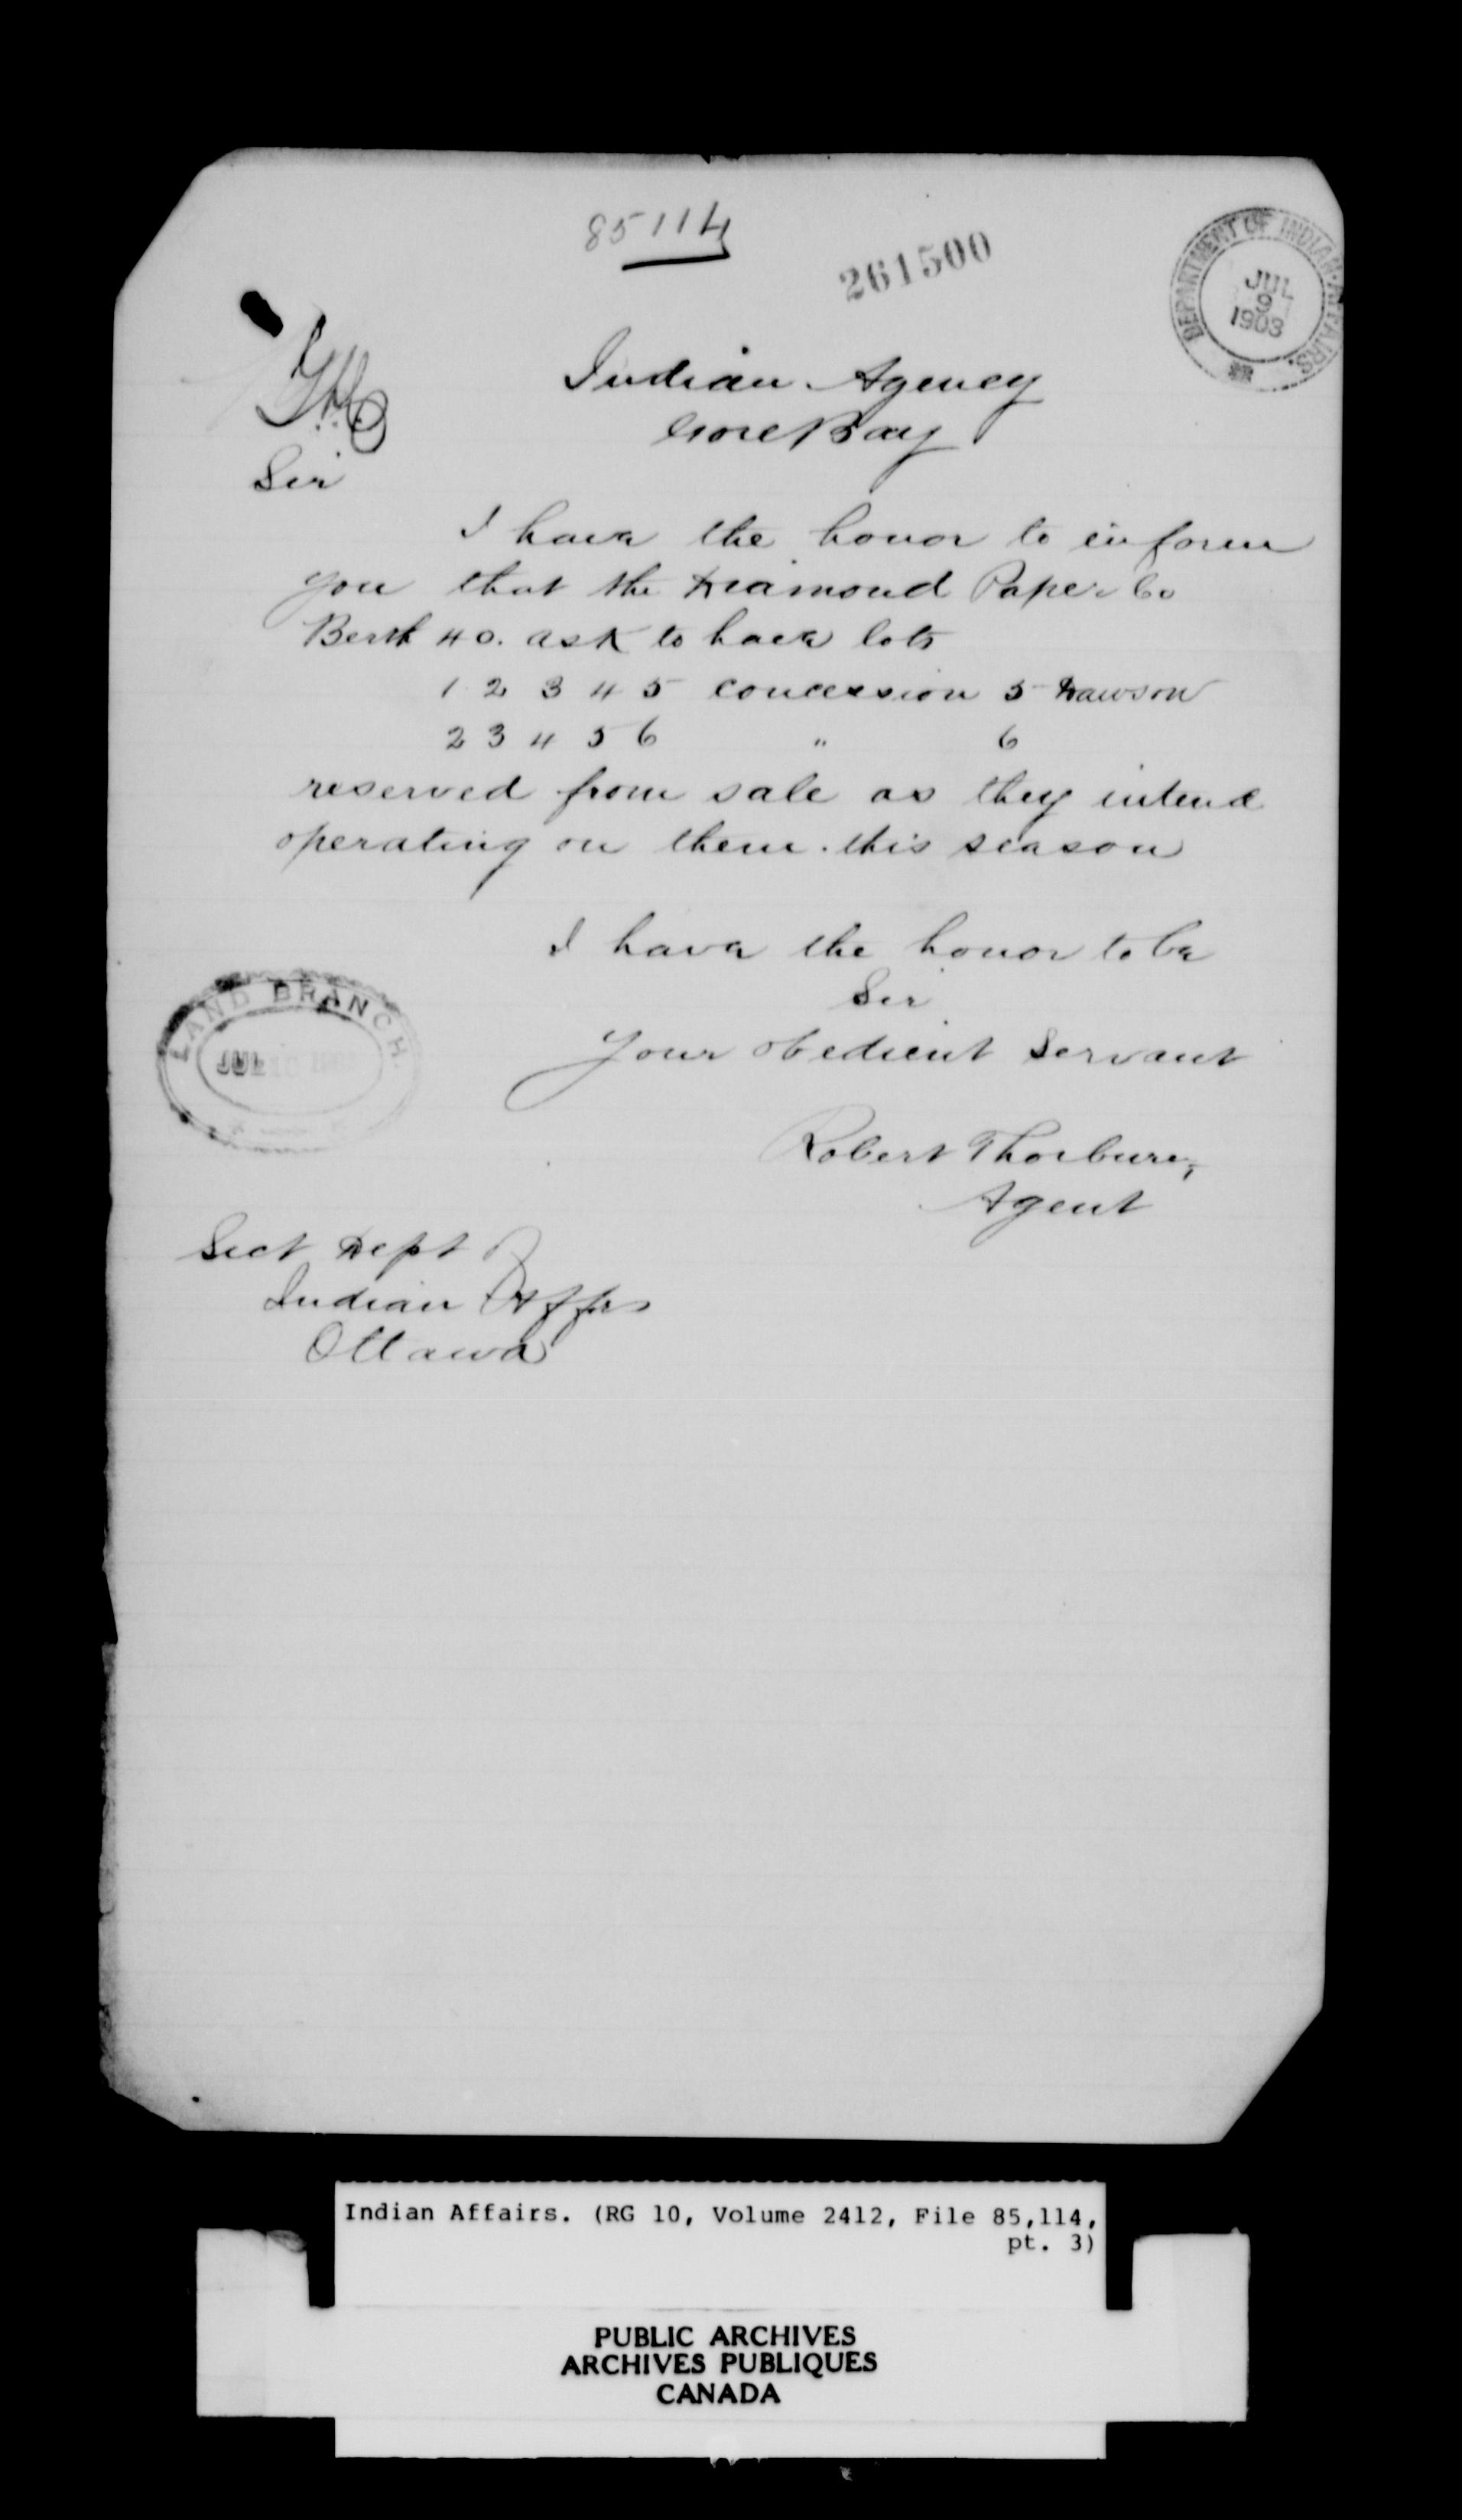 85114
261500
DEPARTMENT OF INDIAN AFFAIRS.
JUL
9
1903
Indian Agency
Gore Bay
Sir
I have the honor to inform
you that the Diamond Paper Co
Berth 40. ask to have lots
1 2 3 4 5 concession 5 Dawson
2 3 4 5 6 " 6
reserved from sale as they intend
operating on them this season
I have the honor to be
Sir
Your obedient Servant
LAND BRANCH
JUL 10
Robert Thorburn,
Agent
Sect Dept
Indian Affrs
Ottawa
Indian Affairs. (RG 10, Volume 2412, File 85,114,
pt. 3)
PUBLIC ARCHIVES
ARCHIVES PUBLIQUES
CANADA